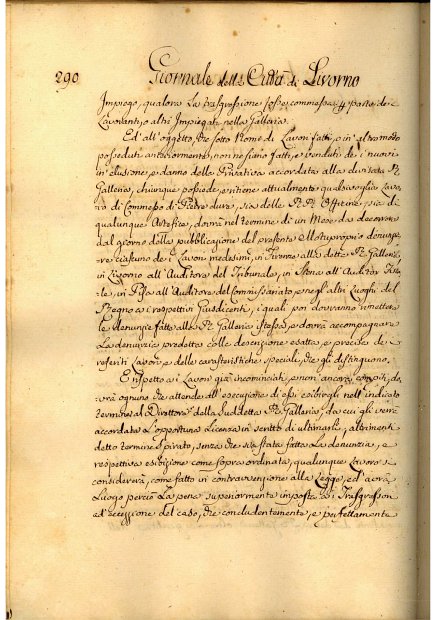 290
Giornale della Città di Livorno
Impiego, qualora La trasgressione fosse commessa p parte de i
Lavoranti, o altri Impiegati nella Galleria.
Ed all'oggetto, che sotto Nome di Lavori fatti, o in altro modo
posseduti anteriormente, non ne siano fatti, e venduti de i nuovi
in elusione, e danno della Privativa accordata alla divisata R.
Galleria, chiunque possiede, e ritiene attualmente qualsisoglia Lavo,
ro di Commesso di Pietre dure, sia delle RR. Officine, sia di
qualunque Artefice, dovrà nel termine di un Mese da decorrere
dal giorno della pubblicazione del presente Motuproprio denunzia,
re ciascuno de i Lavori medesimi, in Firenze alla detta R. Galleria,
in Livorno all'Auditore del Tribunale, in Siena all'Auditor Fisca,
le, in Pisa all'Auditore del Commissariato, e negli altri Luoghi del
Regno a i respettivi Giusdicenti, i quali poi dovranno rimettere
le denunzie fatte alla R. Galleria istessa, e dovrà accompagnare
La denunzia predetta colle descrizione esatta, e precisa de i
referiti Lavori, e delle caratteristiche speciali, che gli distinguono.
E rispetto a i Lavori già incominciati, e non ancora compiti, do,
vrà ognuno che attende all'esecuzione di essi esibirgli nell'indicato
termine al Direttore della suddetta R. Galleria, da cui gli verrà
accordata L'opportuna Licenza in scritto di ultimarli, altrimenti
detto termine spirato, senza che sia stata fatta La denunzia, e
respettiva esibizione come sopra ordinata, qualunque Lavoro si
considererà, come fatto in contravvenzione alla Legge, ed avrà
Luogo perciò La pena superiormente imposta a i Trasgressori
ad eccezione del caso, che concludentemente, e perfettamente